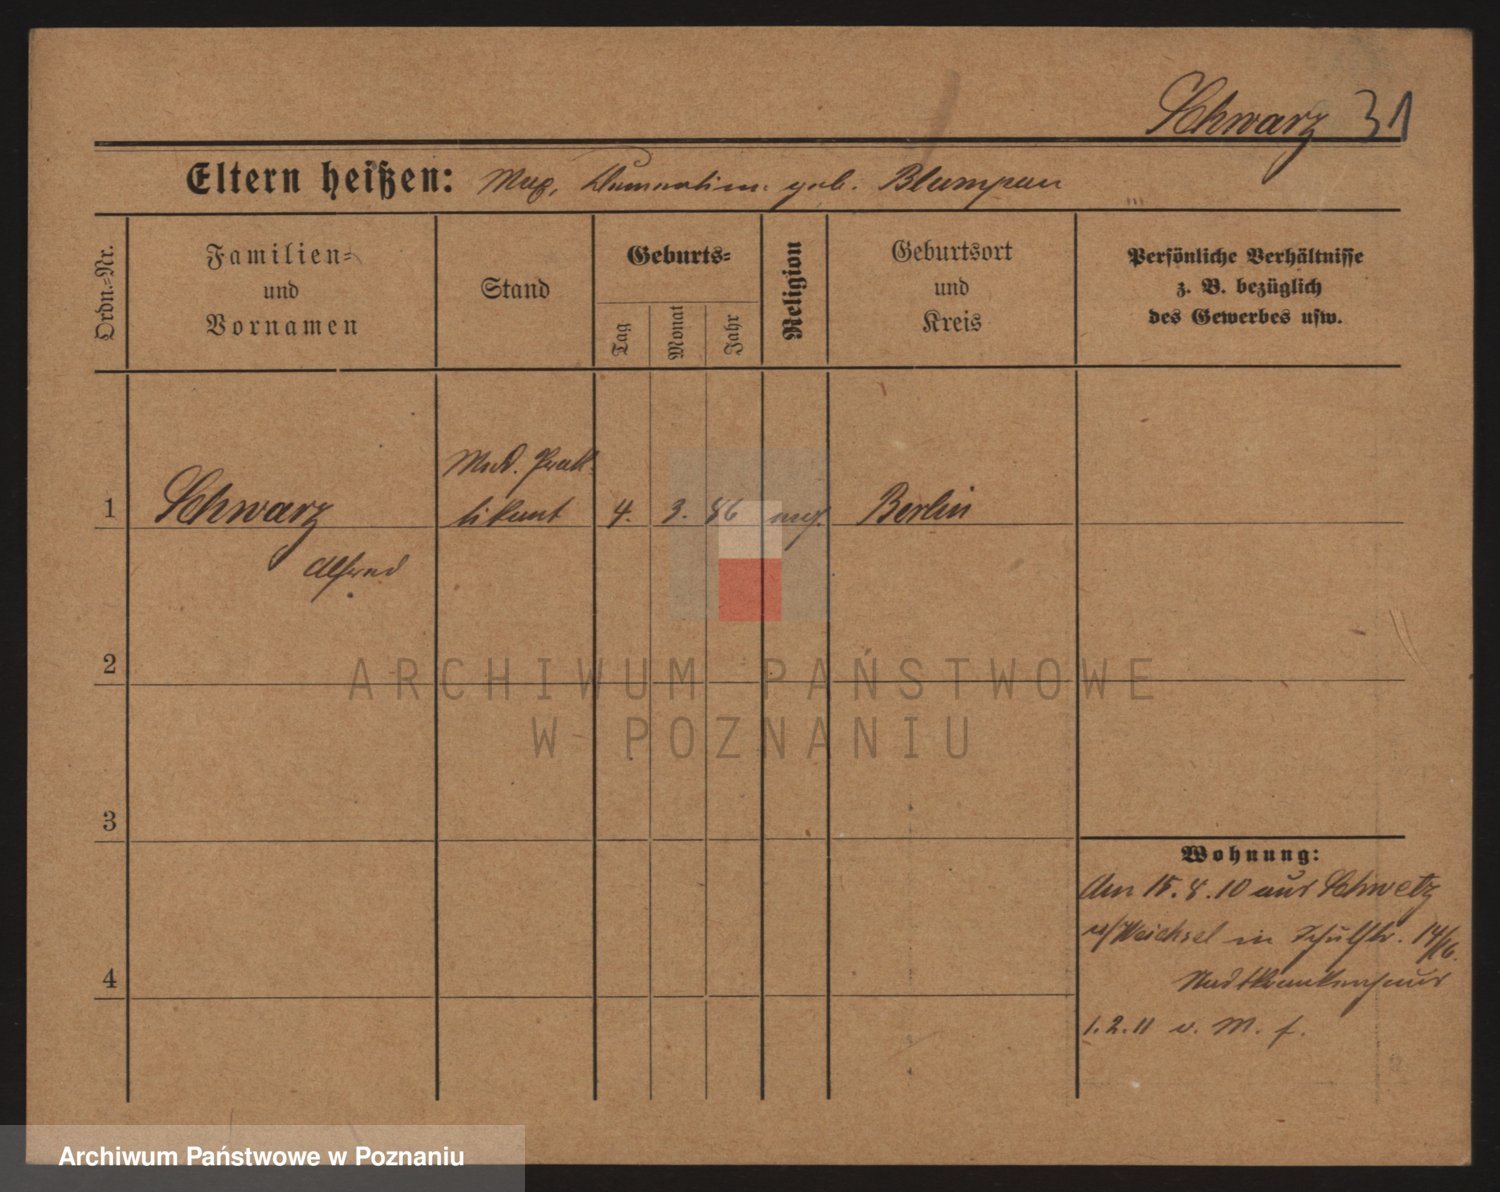 Schwarz 31
Eltern heißen: Max, geb.
Ordn.=Nr.
Familien=
und
Vornamen
Stand
Geburts=
Tag
Monat
Jahr
Religion
Geburtsort
und
Kreis
Persönliche Verhältnisse
z. B. bezüglich
des Gewerbes usw.
Med. Prak-
1 Schwarz tikant 4. 3. 86 Berlin
Alfred
2
ARCHIWUM PAŃSTWOWE
W POZNANIU
3
Wohnung:
Am 15.8.10 aus Schwetz
a/Weichsel in Schulstr. 14/16.
4 Stadtkrankenhaus
1.2.11 v. M. f.
Archiwum Państwowe w Poznaniu